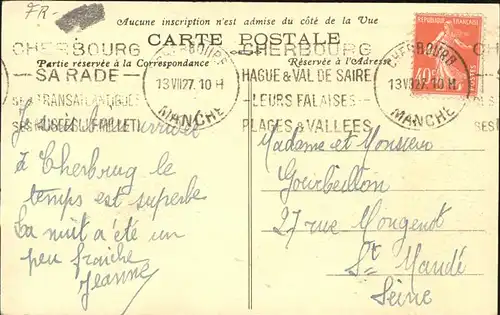 FR-
Aucune inscription n'est admise du côté de la Vue
CARTE POSTALE
Partie réservée à la Correspondance
Réservée à l'Adresse
CHERBOURG
SA RADE
SES TRANSATLANTIQUES
CHERBOURG
13 VII 27. 10 H
MANCHE
CHERBOURG
HAGUE & VAL DE SAIRE
LEURS FALAISES
PLAGES & VALLEES
CHERBOURG
13 VII 27. 10 H
MANCHE
REPUBLIQUE FRANÇAISE
40
SES
Je
à Cherbrug le
temps est superbe
La nuit a été un
peu fraiche
Jeanne
Madame et Monsieur
Gourbeillon
27 rue Mougenot
St Mandé
Seine